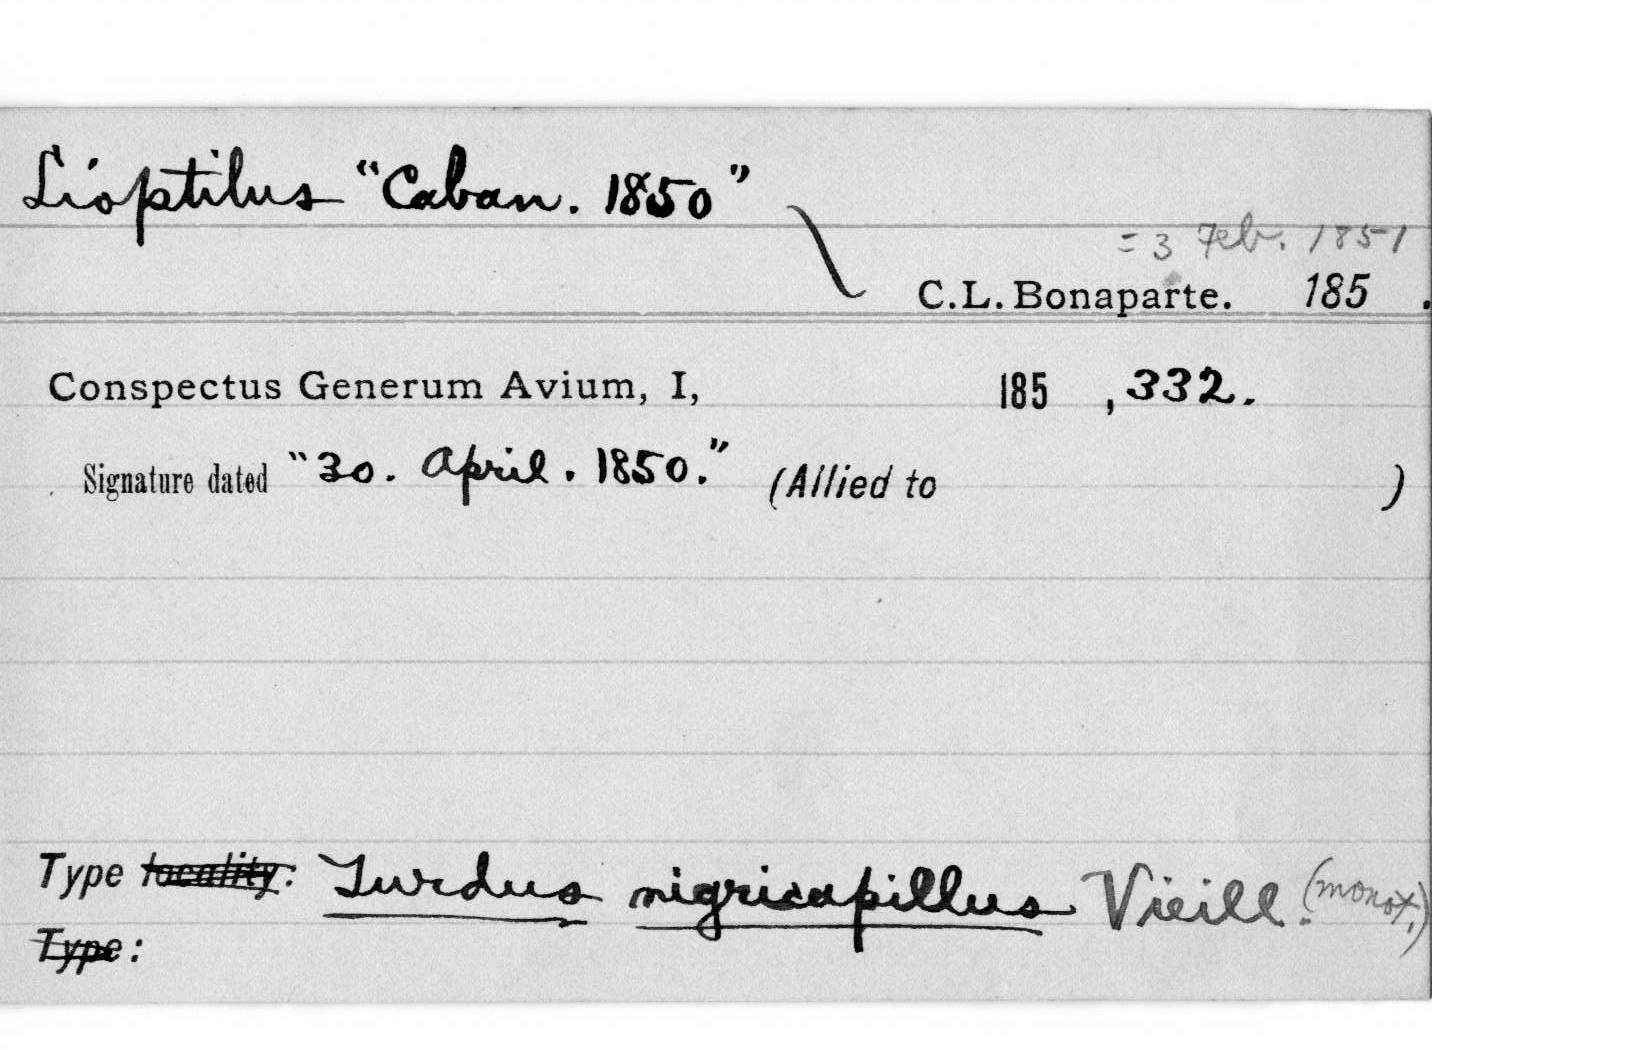 Lioptilus “Caban. 1850”
= 3 Feb. 1851
C.L. Bonaparte. 185 .
Conspectus Generum Avium, I, 185 , 332.
Signature dated “30. April. 1850.” (Allied to )
Type locality: Turdus nigricapillus Vieill. (monot.)
Type: